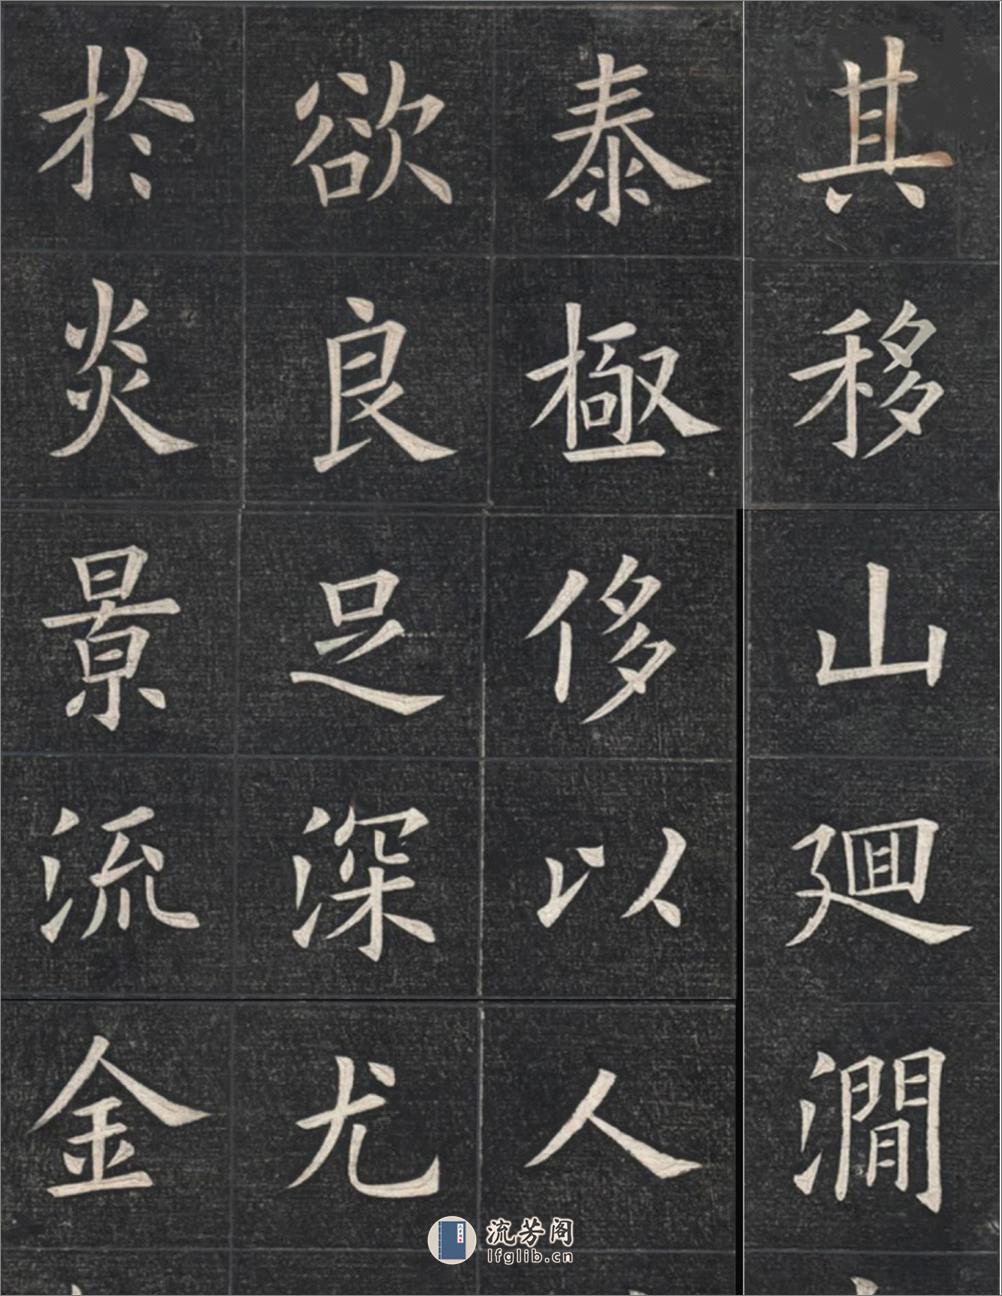 其移山廻澗
泰極侈以人
欲良足深尤
於炎景流金
流芳阁
lfglib.cn